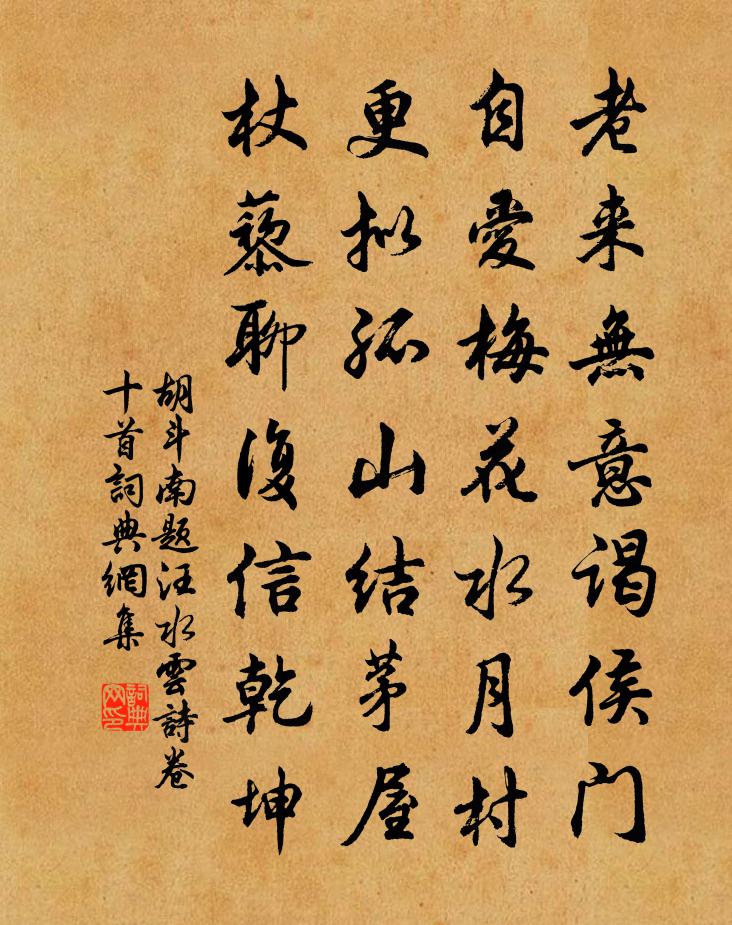 老来無意谒侯门
自愛梅花水月村
更拟孤山结茅屋
杖藜聊復信乾坤
胡斗南题汪水雲詩卷
十首詞典網集
詞典
网印